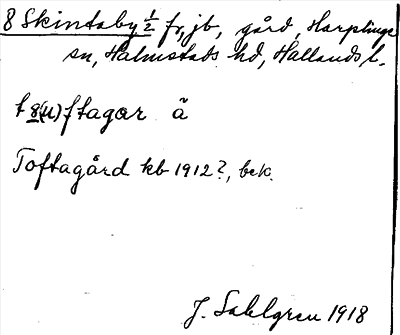 8 Skintaby 1/2 fr, jb, gård, Harplinge
sn, Halmstads hd, Hallands l.
Toftagård kb 1912?, bek.
J. Sahlgren 1918